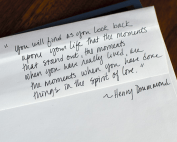 "You will find as you look back
upon your life that the moments
that stand out, the moments
when you have really lived, are
the moments when you have done
things in the spirit of love."
~Henry Drummond